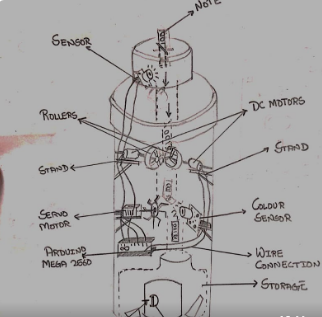 NOTE
SENSOR
ROLLERS
DC MOTORS
STAND
STAND
SERVO
MOTOR
COLOUR
SENSOR
ARDUINO
MEGA 2560
WIRE
CONNECTION
STORAGE